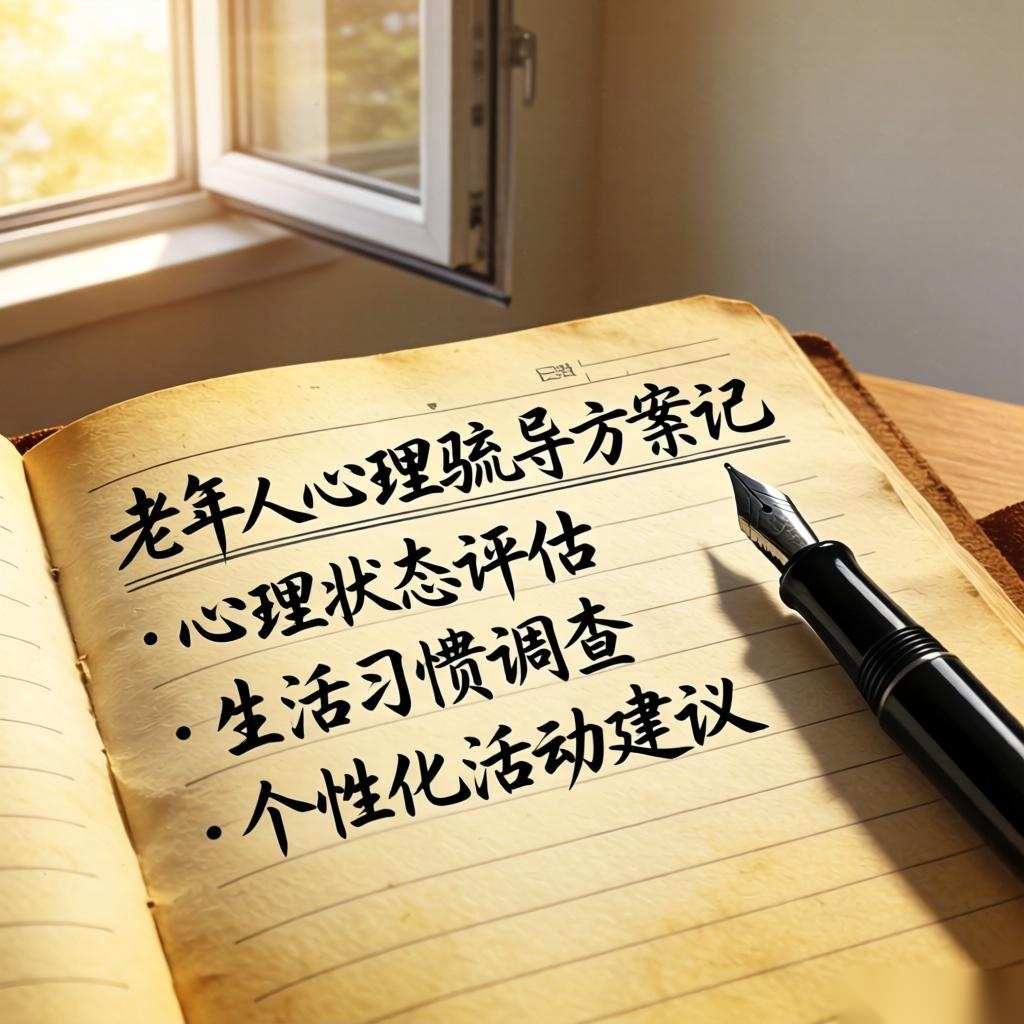 老年人心理疏导方案记
·心理状态评估
·生活习惯调查
·个性化活动建议